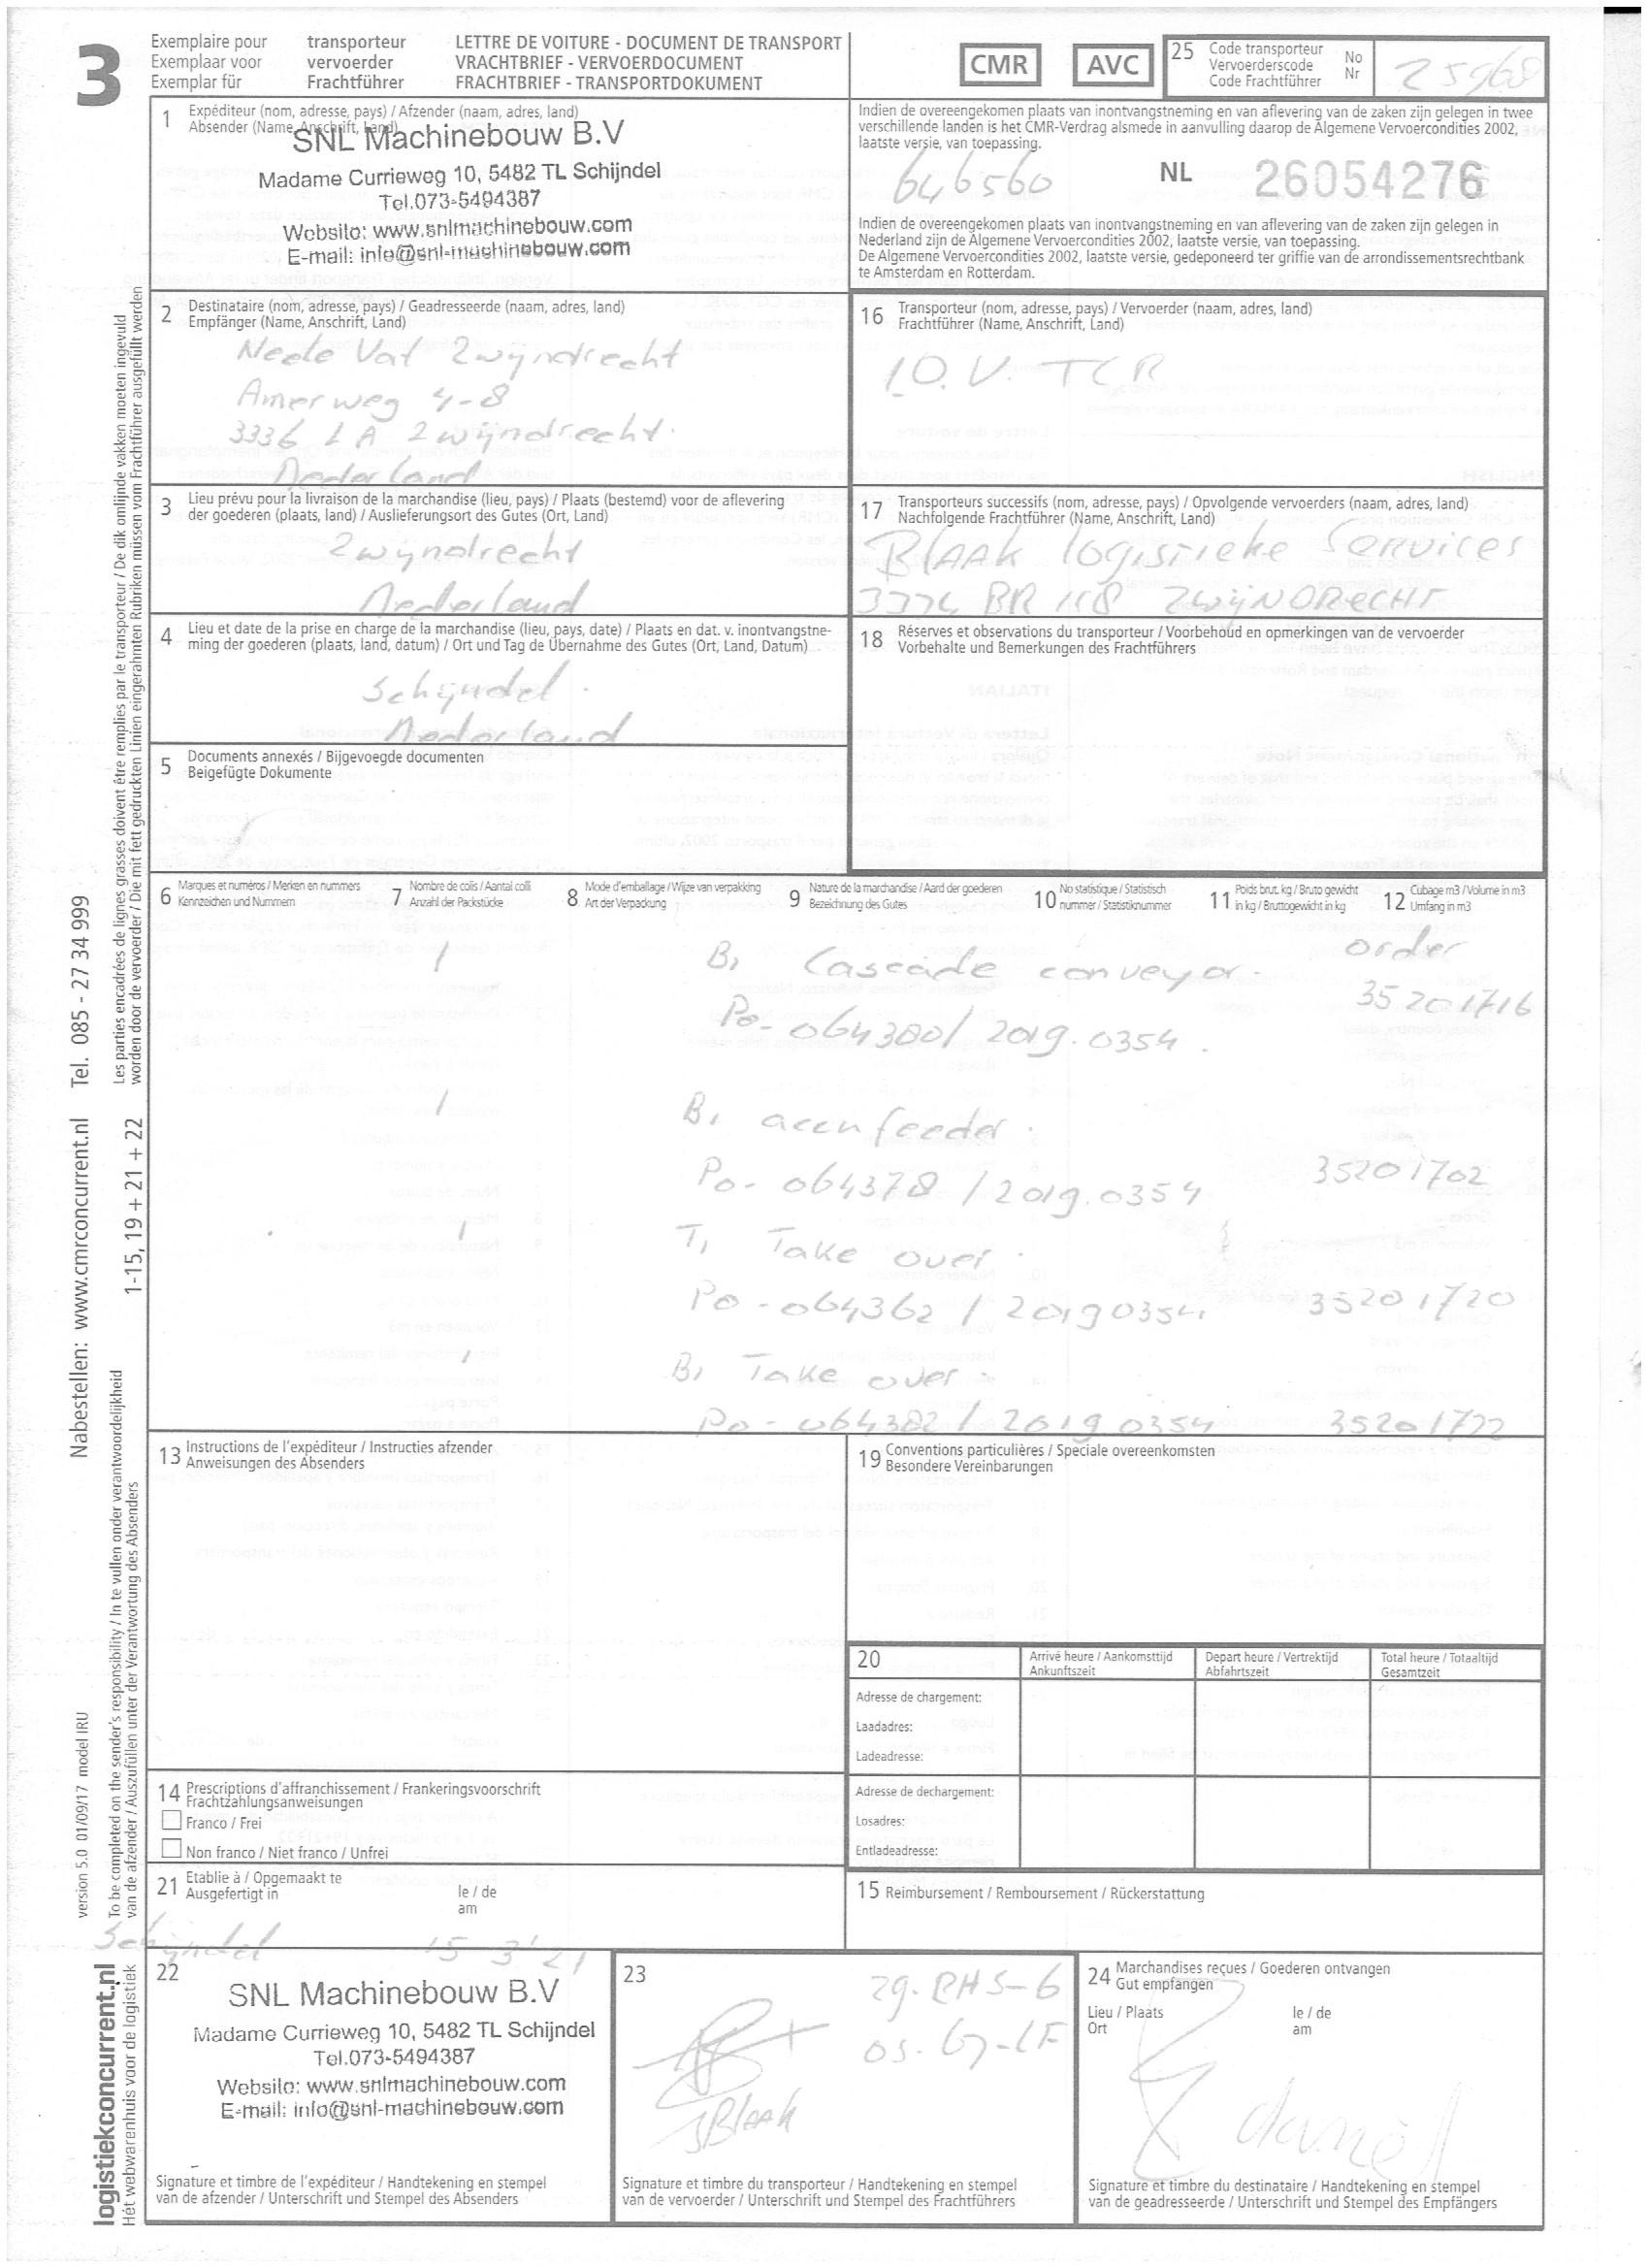 3
Exemplaire pour transporteur LETTRE DE VOITURE - DOCUMENT DE TRANSPORT
Exemplaar voor vervoerder VRACHTBRIEF - VERVOERDOCUMENT
Exemplar für Frachtführer FRACHTBRIEF - TRANSPORTDOKUMENT
CMR AVC
25 Code transporteur
Vervoerderscode
Code Frachtführer
No
Nr
25968
1 Expéditeur (nom, adresse, pays) / Afzender (naam, adres, land)
Absender (Name, Anschrift, Land)
SNL Machinebouw B.V
Madame Currieweg 10, 5482 TL Schijndel
Tel.073-5494387
Website: www.snlmachinebouw.com
E-mail: info@snl-machinebouw.com
Indien de overeengekomen plaats van inontvangstneming en van aflevering van de zaken zijn gelegen in twee
verschillende landen is het CMR-Verdrag alsmede in aanvulling daarop de Algemene Vervoercondities 2002,
laatste versie, van toepassing.
646560 NL 26054276
Indien de overeengekomen plaats van inontvangstneming en van aflevering van de zaken zijn gelegen in
Nederland zijn de Algemene Vervoercondities 2002, laatste versie, van toepassing.
De Algemene Vervoercondities 2002, laatste versie, gedeponeerd ter griffie van de arrondissementsrechtbank
te Amsterdam en Rotterdam.
2 Destinataire (nom, adresse, pays) / Geadresseerde (naam, adres, land)
Empfänger (Name, Anschrift, Land)
Nede Vat Zwyndrecht
Amerweg 4-8
3336 LA Zwijndrecht.
Nederland
16 Transporteur (nom, adresse, pays) / Vervoerder (naam, adres, land)
Frachtführer (Name, Anschrift, Land)
I.O.V. TCR
3 Lieu prévu pour la livraison de la marchandise (lieu, pays) / Plaats (bestemd) voor de aflevering
der goederen (plaats, land) / Auslieferungsort des Gutes (Ort, Land)
Zwyndrecht
Nederland
17 Transporteurs successifs (nom, adresse, pays) / Opvolgende vervoerders (naam, adres, land)
Nachfolgende Frachtführer (Name, Anschrift, Land)
BLAAK logistieke services
3334 BR 118 ZWIJNDRECHT
4 Lieu et date de la prise en charge de la marchandise (lieu, pays, date) / Plaats en dat. v. inontvangstne-
ming der goederen (plaats, land, datum) / Ort und Tag de Übernahme des Gutes (Ort, Land, Datum)
Schijndel.
Nederland
18 Réserves et observations du transporteur / Voorbehoud en opmerkingen van de vervoerder
Vorbehalte und Bemerkungen des Frachtführers
5 Documents annexés / Bijgevoegde documenten
Beigefügte Dokumente
6 Marques et numéros / Merken en nummers
Kennzeichen und Nummern
7 Nombre de colis / Aantal colli
Anzahl der Packstücke
8 Mode d'emballage / Wijze van verpakking
Art der Verpackung
9 Nature de la marchandise / Aard der goederen
Bezeichnung des Gutes
10 No statistique / Statistisch
nummer / Statistiknummer
11 Poids brut. kg / Bruto gewicht
in kg / Bruttogewicht in kg
12 Cubage m3 / Volume in m3
Umfang in m3
1 B1 Cascade conveyor. order
35201716
Po-064380/2019.0354.
1 B1 accufeeder.
Po-064378/2019.0354. 35201702
1 T1 Take over.
Po-064362/20190354. 35201720
1 B1 Take over.
Po-064382/20190354 35201722
13 Instructions de l'expéditeur / Instructies afzender
Anweisungen des Absenders
19 Conventions particulières / Speciale overeenkomsten
Besondere Vereinbarungen
20 Arrivé heure / Aankomsttijd
Ankunftszeit
Depart heure / Vertrektijd
Abfahrtszeit
Total heure / Totaaltijd
Gesamtzeit
Adresse de chargement:
Laadadres:
Ladeadresse:
Adresse de dechargement:
Losadres:
Entladeadresse:
14 Prescriptions d'affranchissement / Frankeringsvoorschrift
Frachtzahlungsanweisungen
Franco / Frei
Non franco / Niet franco / Unfrei
21 Etablie à / Opgemaakt te
Ausgefertigt in
le / de
am
Schijndel 15 3 '21
15 Reimbursement / Remboursement / Rückerstattung
22
SNL Machinebouw B.V
Madame Currieweg 10, 5482 TL Schijndel
Tel.073-5494387
Website: www.snlmachinebouw.com
E-mail: info@snl-machinebouw.com
Signature et timbre de l'expéditeur / Handtekening en stempel
van de afzender / Unterschrift und Stempel des Absenders
23
JBlaak
Signature et timbre du transporteur / Handtekening en stempel
van de vervoerder / Unterschrift und Stempel des Frachtführers
24 Marchandises reçues / Goederen ontvangen
Gut empfangen
Lieu / Plaats
Ort
le / de
am
daniel
Signature et timbre du destinataire / Handtekening en stempel
van de geadresseerde / Unterschrift und Stempel des Empfängers
Les parties encadrées de lignes grasses doivent être remplies par le transporteur / De dik omlijnde vakken moeten ingevuld
worden door de vervoerder / Die mit fett gedruckten Linien eingerahmten Rubriken müssen vom Frachtführer ausgefüllt werden
Nabestellen: www.cmrconcurrent.nl Tel. 085 - 27 34 999
1-15, 19 + 21 + 22
To be completed on the sender's responsibility / In te vullen onder verantwoordelijkheid
van de afzender / Auszufüllen unter der Verantwortung des Absenders
version 5.0 01/09/17 model IRU
logistiekconcurrent.nl
Hét webwarenhuis voor de logistiek